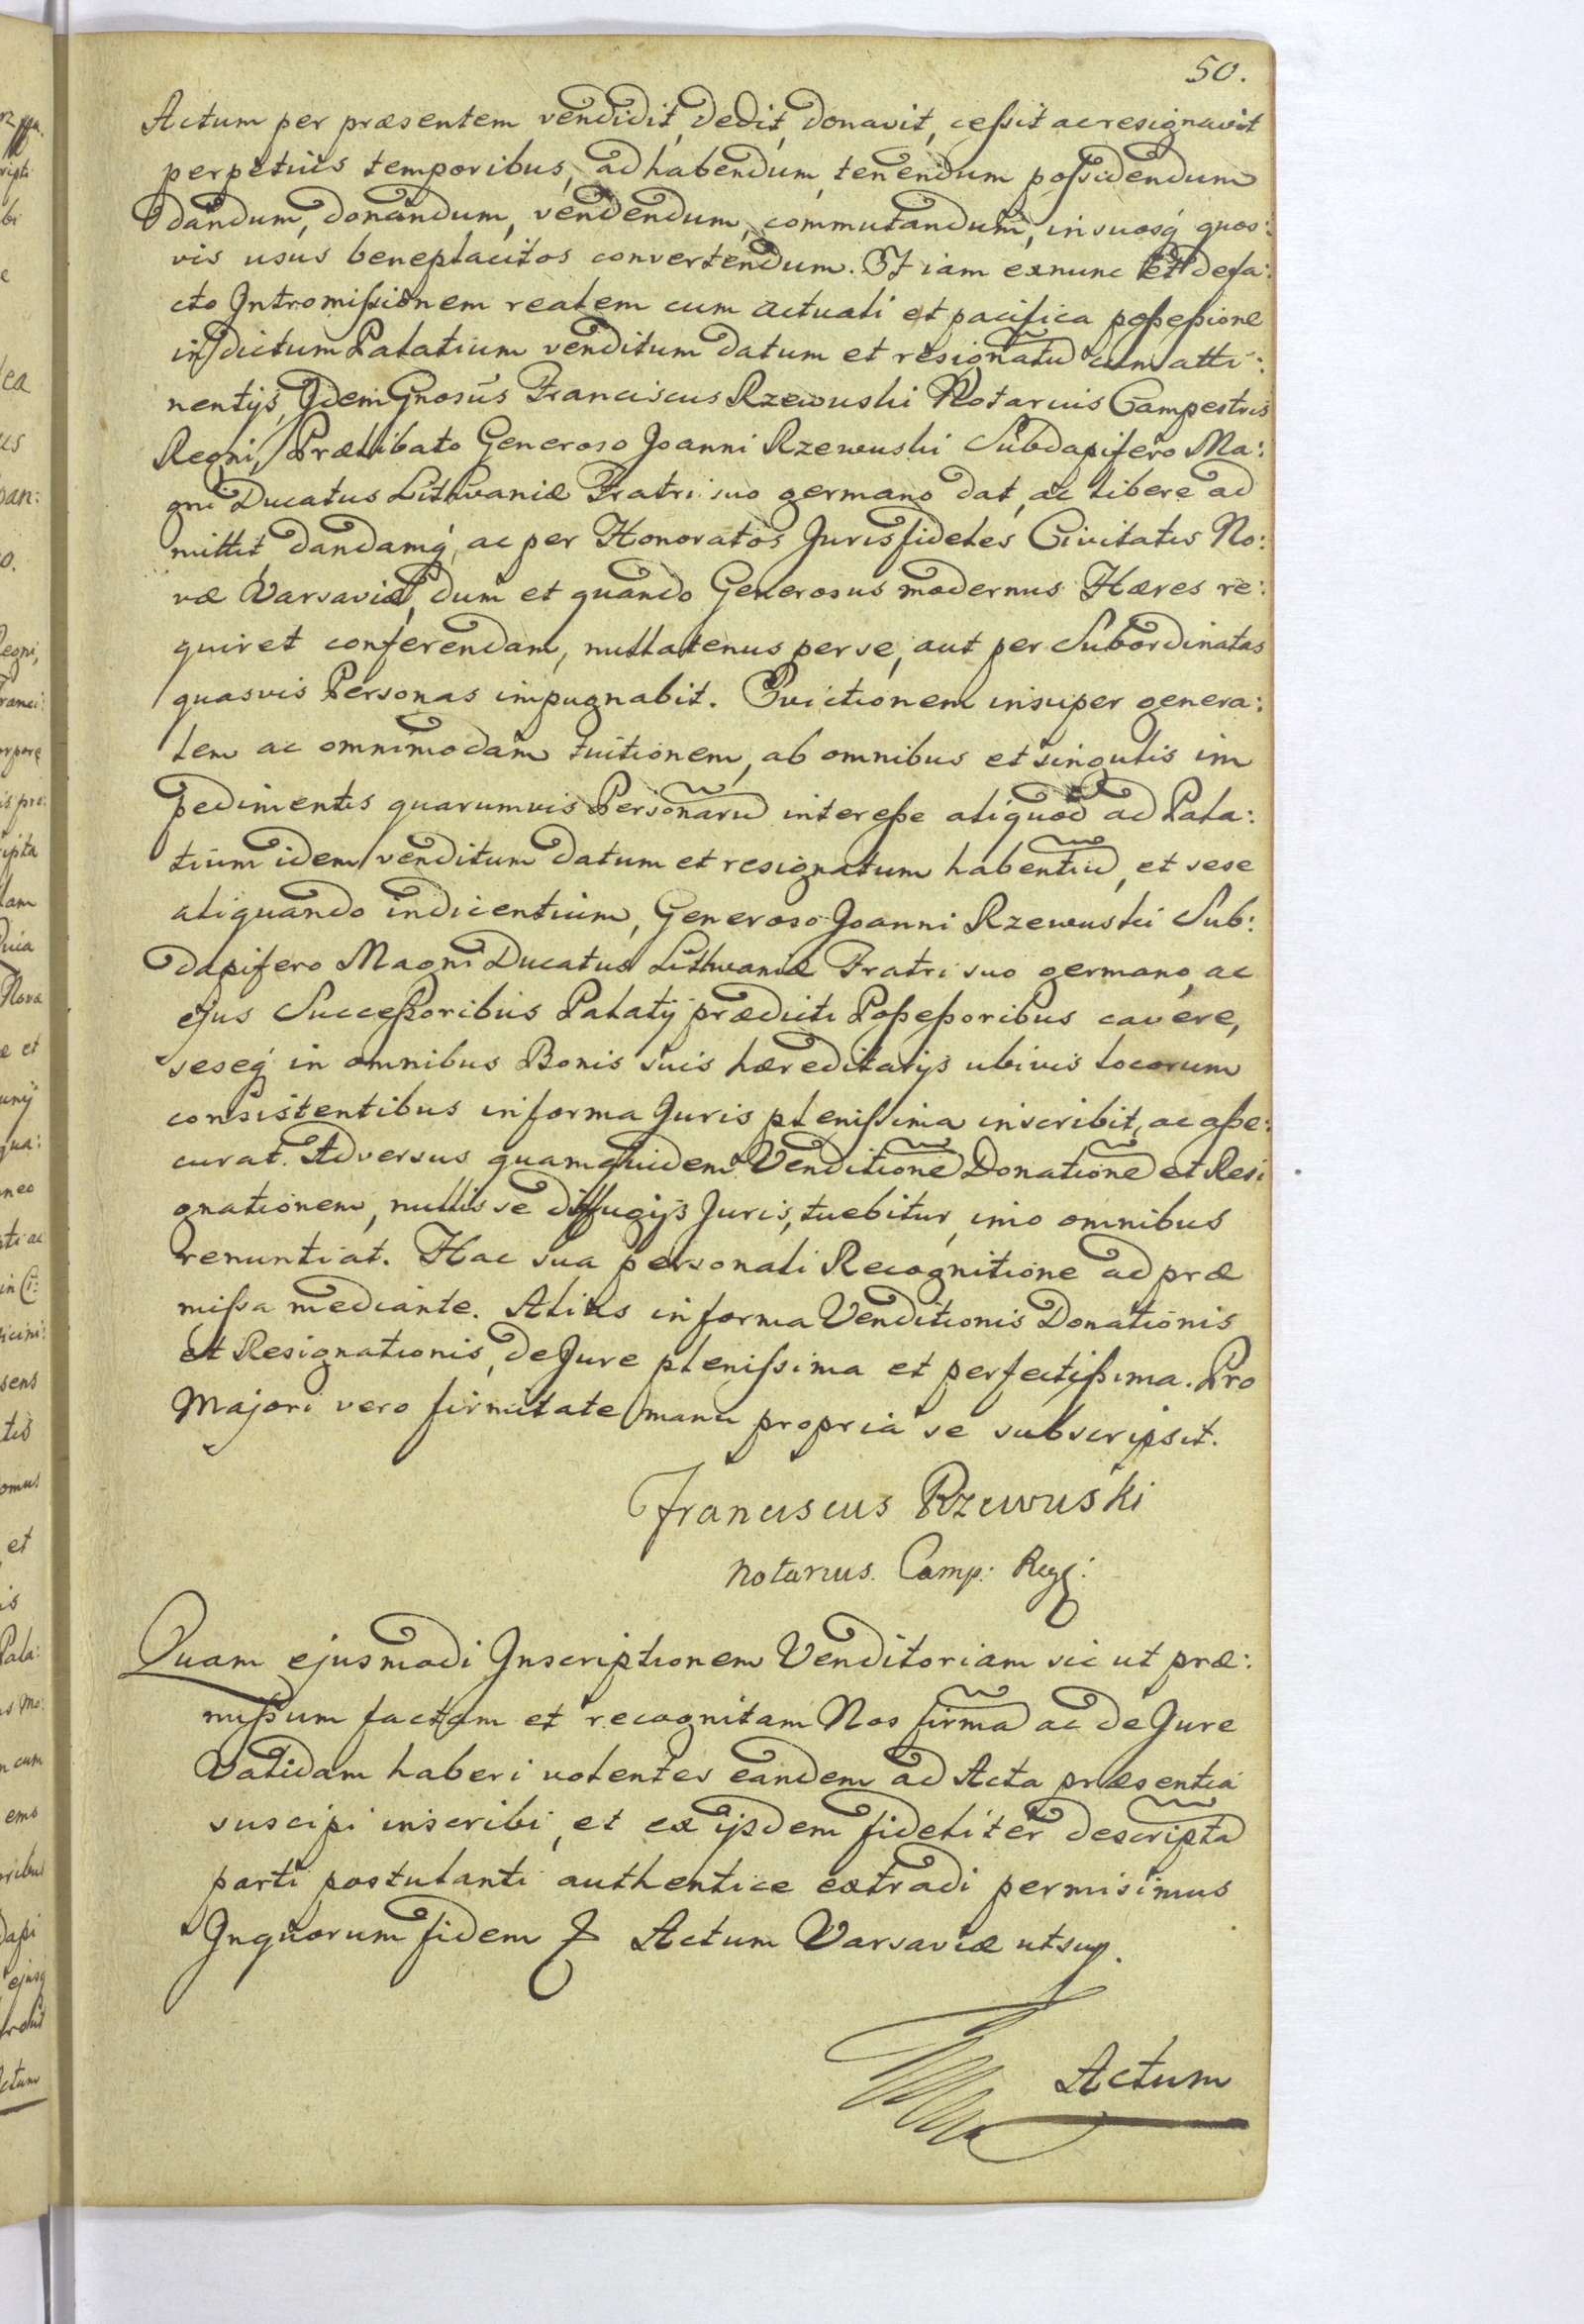 50.
Actum per præsentem vendidit, dedit, donavit, cessit ac resignavit
perpetuis temporibus, ad habendum, tenendum possidendum
dandum, donandum, vendendum, commutandum, in suosq́ quos:
vis usus beneplacitos convertendum. Et iam exnunc et de fa:
cto Intromissionem realem cum actuali et pacifica possessione
in dictum Palatium venditum datum et resignatū cum atti:
nentijs, Idem Gnosus Franciscus Rzewuski Notarius Campestris
Regni, Prælibato Generoso Joanni Rzewuski Subdapifero Ma:
gni Ducatus Lithvaniæ Fratri suo germano dat, ac libere ad
mittit dandamq́, ac per Honoratos Jurisfideles Civitatis No:
væ Varsaviæ, dum et quando Generosus modernus Hæres re:
quiret conferendam, nullatenus per se, aut per Subordinatas
quasvis Personas impugnabit. Evictionem insuper genera:
lem ac omnimodam tuitionem, ab omnibus et singulis im
pedimentis quarumvis Personarū interesse aliquod ad Pala:
tium idem venditum datum et resignatum habentiū, et sese
aliquando indicentium, Generoso Joanni Rzewuski Sub:
dapifero Magni Ducatus Lithvaniæ Fratri suo germano, ac
ejus Successoribus Palatij prædicti Possessoribus cavere,
seseq́ in omnibus Bonis suis hæreditarijs ubivis locorum
consistentibus in forma Juris plenissima inscribit, ac asse:
curat. Adversus quamquidem Venditionē Donationē et Resi
gnationem, nullis se diffugijs Juris, tuebitur, imo omnibus
renuntiat. Hac sua personali Recognitione ad præ
missa mediante. Alias in forma Venditionis Donationis
et Resignationis, de Jure plenissima et perfectissima. Pro
Majori vero firmitate manu propria se subscripsit.
Franciscus Rzewuski
Notarius. Camp: Reg:
Quam ejusmodi Inscriptionem Venditoriam sic ut præ:
missum factam et recognitam Nos firmā ac de Jure
Validam haberi volentes eandem ad Acta præsentia
suscipi inscribi, et ex ijsdem fideliter descriptā
parti postulanti authentice extradi permisimus
In quorum fidem Actum Varsaviæ ut sup.
Actum